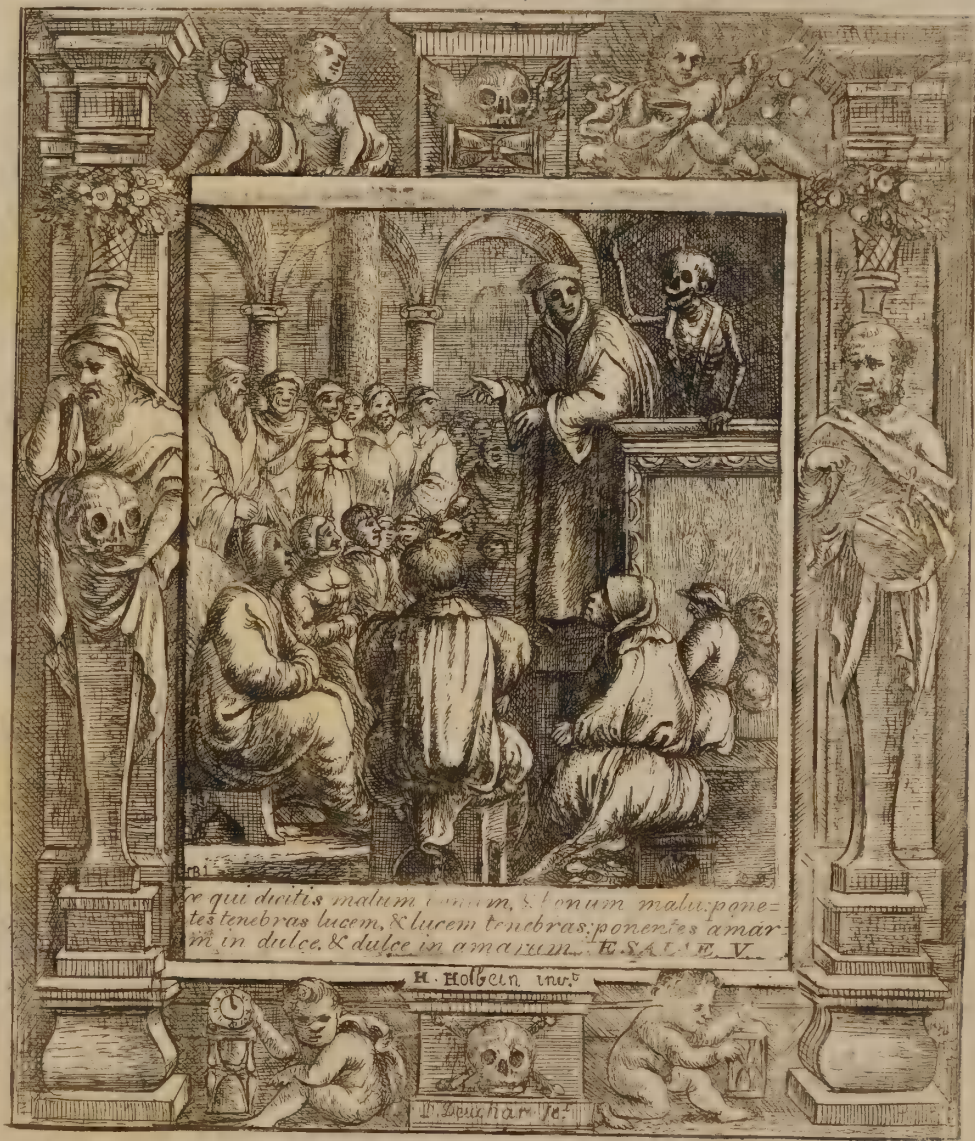 qui dicitis malum & bonum malu: pone=
tes tenebras lucem, & lucem tenebras: ponentes amar
m in dulce, & dulce in amarum. ESAIAE V.
H. Holbein inv.t
D. Deuchar fe.t